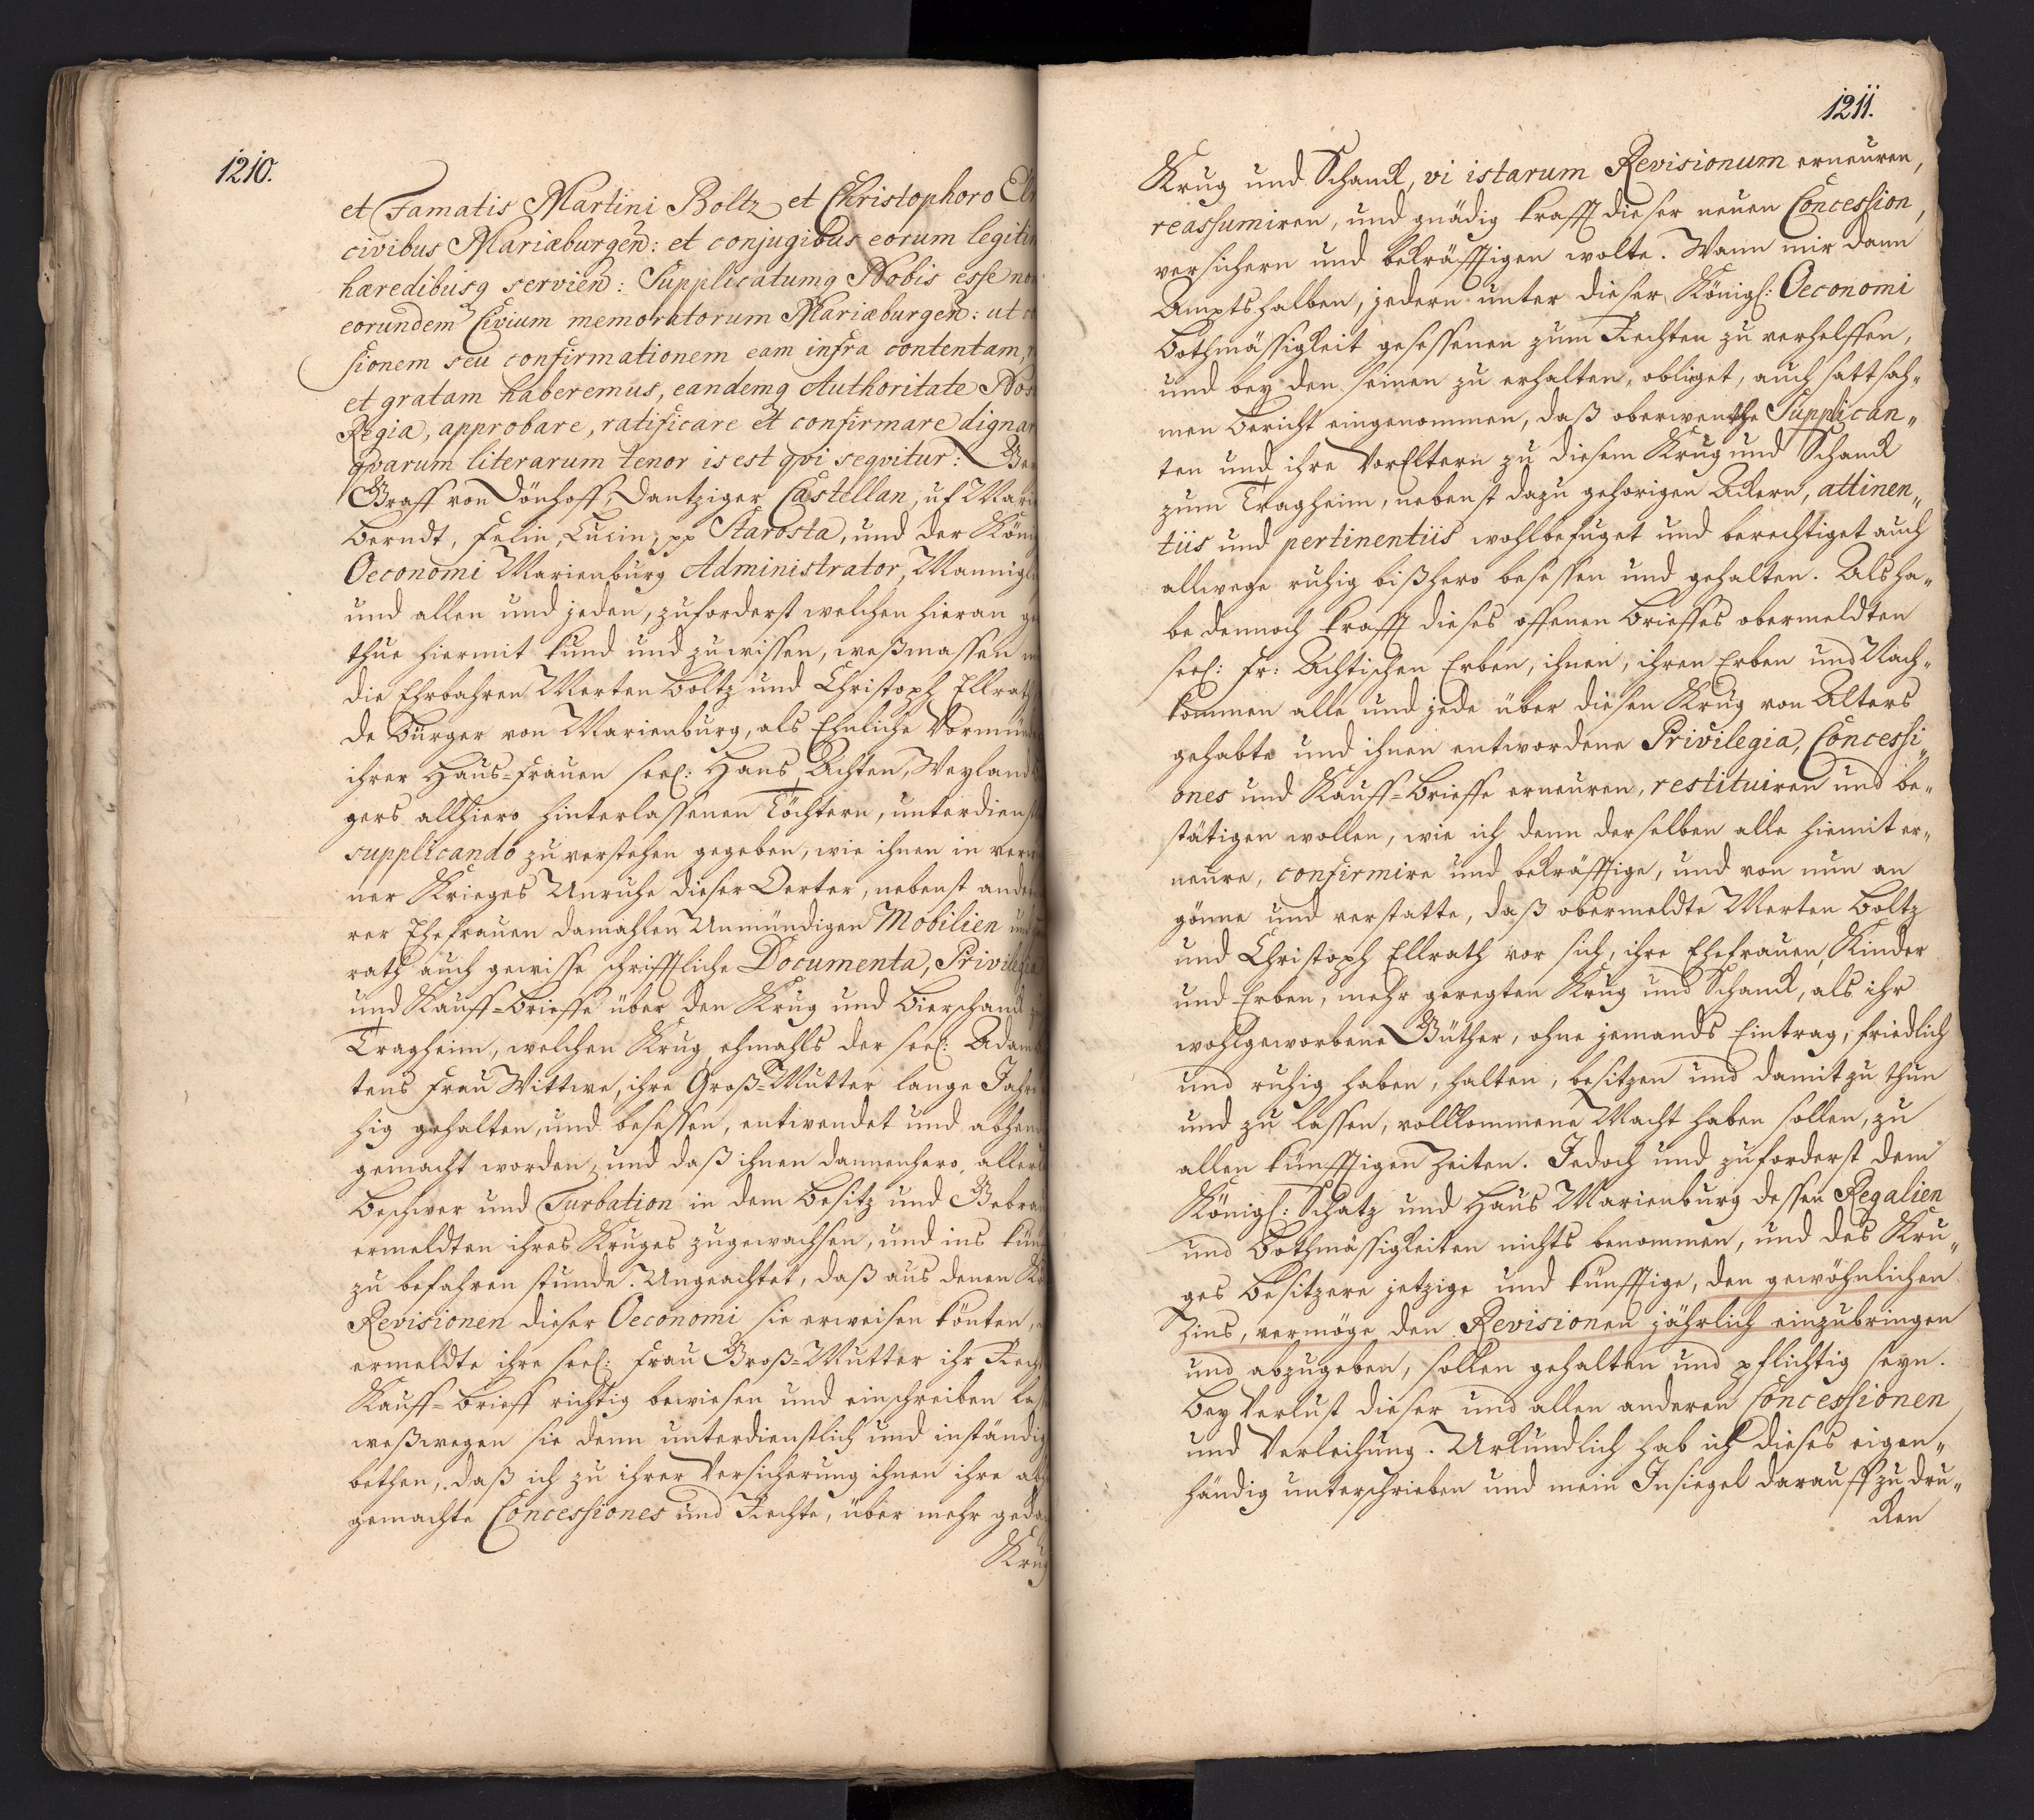 1210.
et Famatis Martini Boltz et Christophoro
civibus Mariæburgen̄: et conjugibus eorum
hæredibusq servien̄: Supplicatumq Nobis esse
eorundem Civium memoratorum Mariæburgen̄: ut
sionem seu confirmationem eam infra contentam,
et gratam haberemus, eandemq Authoritate
Regia, approbare, ratificare et confirmare
qvarum literarum tenor is est qvi seqvitur:
Graff von Dönhoff, Dantziger Castellan, uf
Berndt, Felin, Lucin, pp Starosta, und der
Oeconomi Marienburg Administrator,
und allen und jeden, zuforderst welchen hieran
thue hiermit kund und zu wissen, weßmassen
die Ehrbahren Merten Boltz und Christoph
de Bürger von Marienburg, als Ehliche
ihrer Haus-Frauen seel: Hans Achten,
gers allhiero hinterlassenen Töchtern,
supplicando zu verstehen gegeben, wie ihnen in
ner Krieges Unruhe dieser Oerter, nebenst
rer Ehefrauen damahlen Unmündigen Mobilien
rath auch gewisse schrifftliche Documenta,
und Kauff-Brieffe über den Krug und Bierschanck
Tragheim, welchen Krug, ehmahls der seel:
tens Frau Wittwe, ihre Groß-Mutter lange
hig gehalten, und besessen, entwendet und
gemacht worden, und daß ihnen dannenhero,
Beschwer und Turbation in dem Besitz und
ermeldten ihres Kruges zugewachsen, und ins
zu befahren stunde. Ungeachtet, daß aus denen
Revisionen dieser Oeconomi sie erweisen könten,
ermeldte ihre seel: Frau Groß-Mutter ihr
Kauff-Brieff richtig bewiesen und einschreiben
weßwegen sie denn unterdienstlich und
bethen, daß ich zu ihrer Versicherung ihnen ihre
gemachte Concessiones und Rechte, über mehr
Krug
1211.
Krug und Schanck, vi istarum Revisionum erneuren,
reassumiren, und gnädig krafft dieser neuen Concession,
versichern und bekräfftigen wolte. Wann mir dann
Ampts halben, jedern unter dieser Königl: Oeconomi
Bothmässigkeit gesessenen zum Rechten zu verhelffen,
und bey den seinen zu erhalten, obliget, auch sattsah„
men Bericht eingenommen, daß oberwenthe Supplican„
ten und ihre VorEltern zu diesem Krug und Schanck
zum Tragheim, nebenst dazu gehorigen Ackern, attinen„
tiis und pertinentiis wohlbefuget und berechtiget auch
allwege ruhig bißhero besessen und gehalten. Als ha„
be dennoch krafft dieses offenen Brieffes obermeldten
seel: Fr: Achtischen Erben, ihnen, ihren Erben und Nach„
kommen alle und jede über diesen Krug von Alters
gehabte und ihnen entwordene Privilegia, Concessi„
ones und Kauff-Brieffe erneuren, restituiren und be„
stätigen wollen, wie ich denn derselben alle hiemit er„
neure, confirmire und bekräfftige, und von nun an
gönne und verstatte, daß obermeldte Merten Boltz
und Christoph Ellrath vor sich, ihre Ehefrauen, Kinder
und Erben, mehr geregten Krug und Schanck, als ihr
wohlgeworbene Güther, ohne jemands Eintrag, friedlich
und ruhig haben, halten, besitzen und damit zu thun
und zu lassen, vollkommene Macht haben sollen, zu
allen künfftigen Zeiten. Jedoch und zuforderst dem
Königl: Schatz und Haus Marienburg dessen Regalien
und Bothmässigkeiten nichts benommen, und des Kru„
ges Besitzere jetzige und künfftige, den gewöhnlichen
Zins, vermöge den Revisionen jährlich einzubringen
und abzugeben, sollen gehalten und pflichtig seyn.
Bey Verlust dieser und allen anderen Concessionen
und Verleihung. Urkundlich hab ich dieses eigen„
händig unterschrieben und mein Insiegel darauff zu dru„
cken